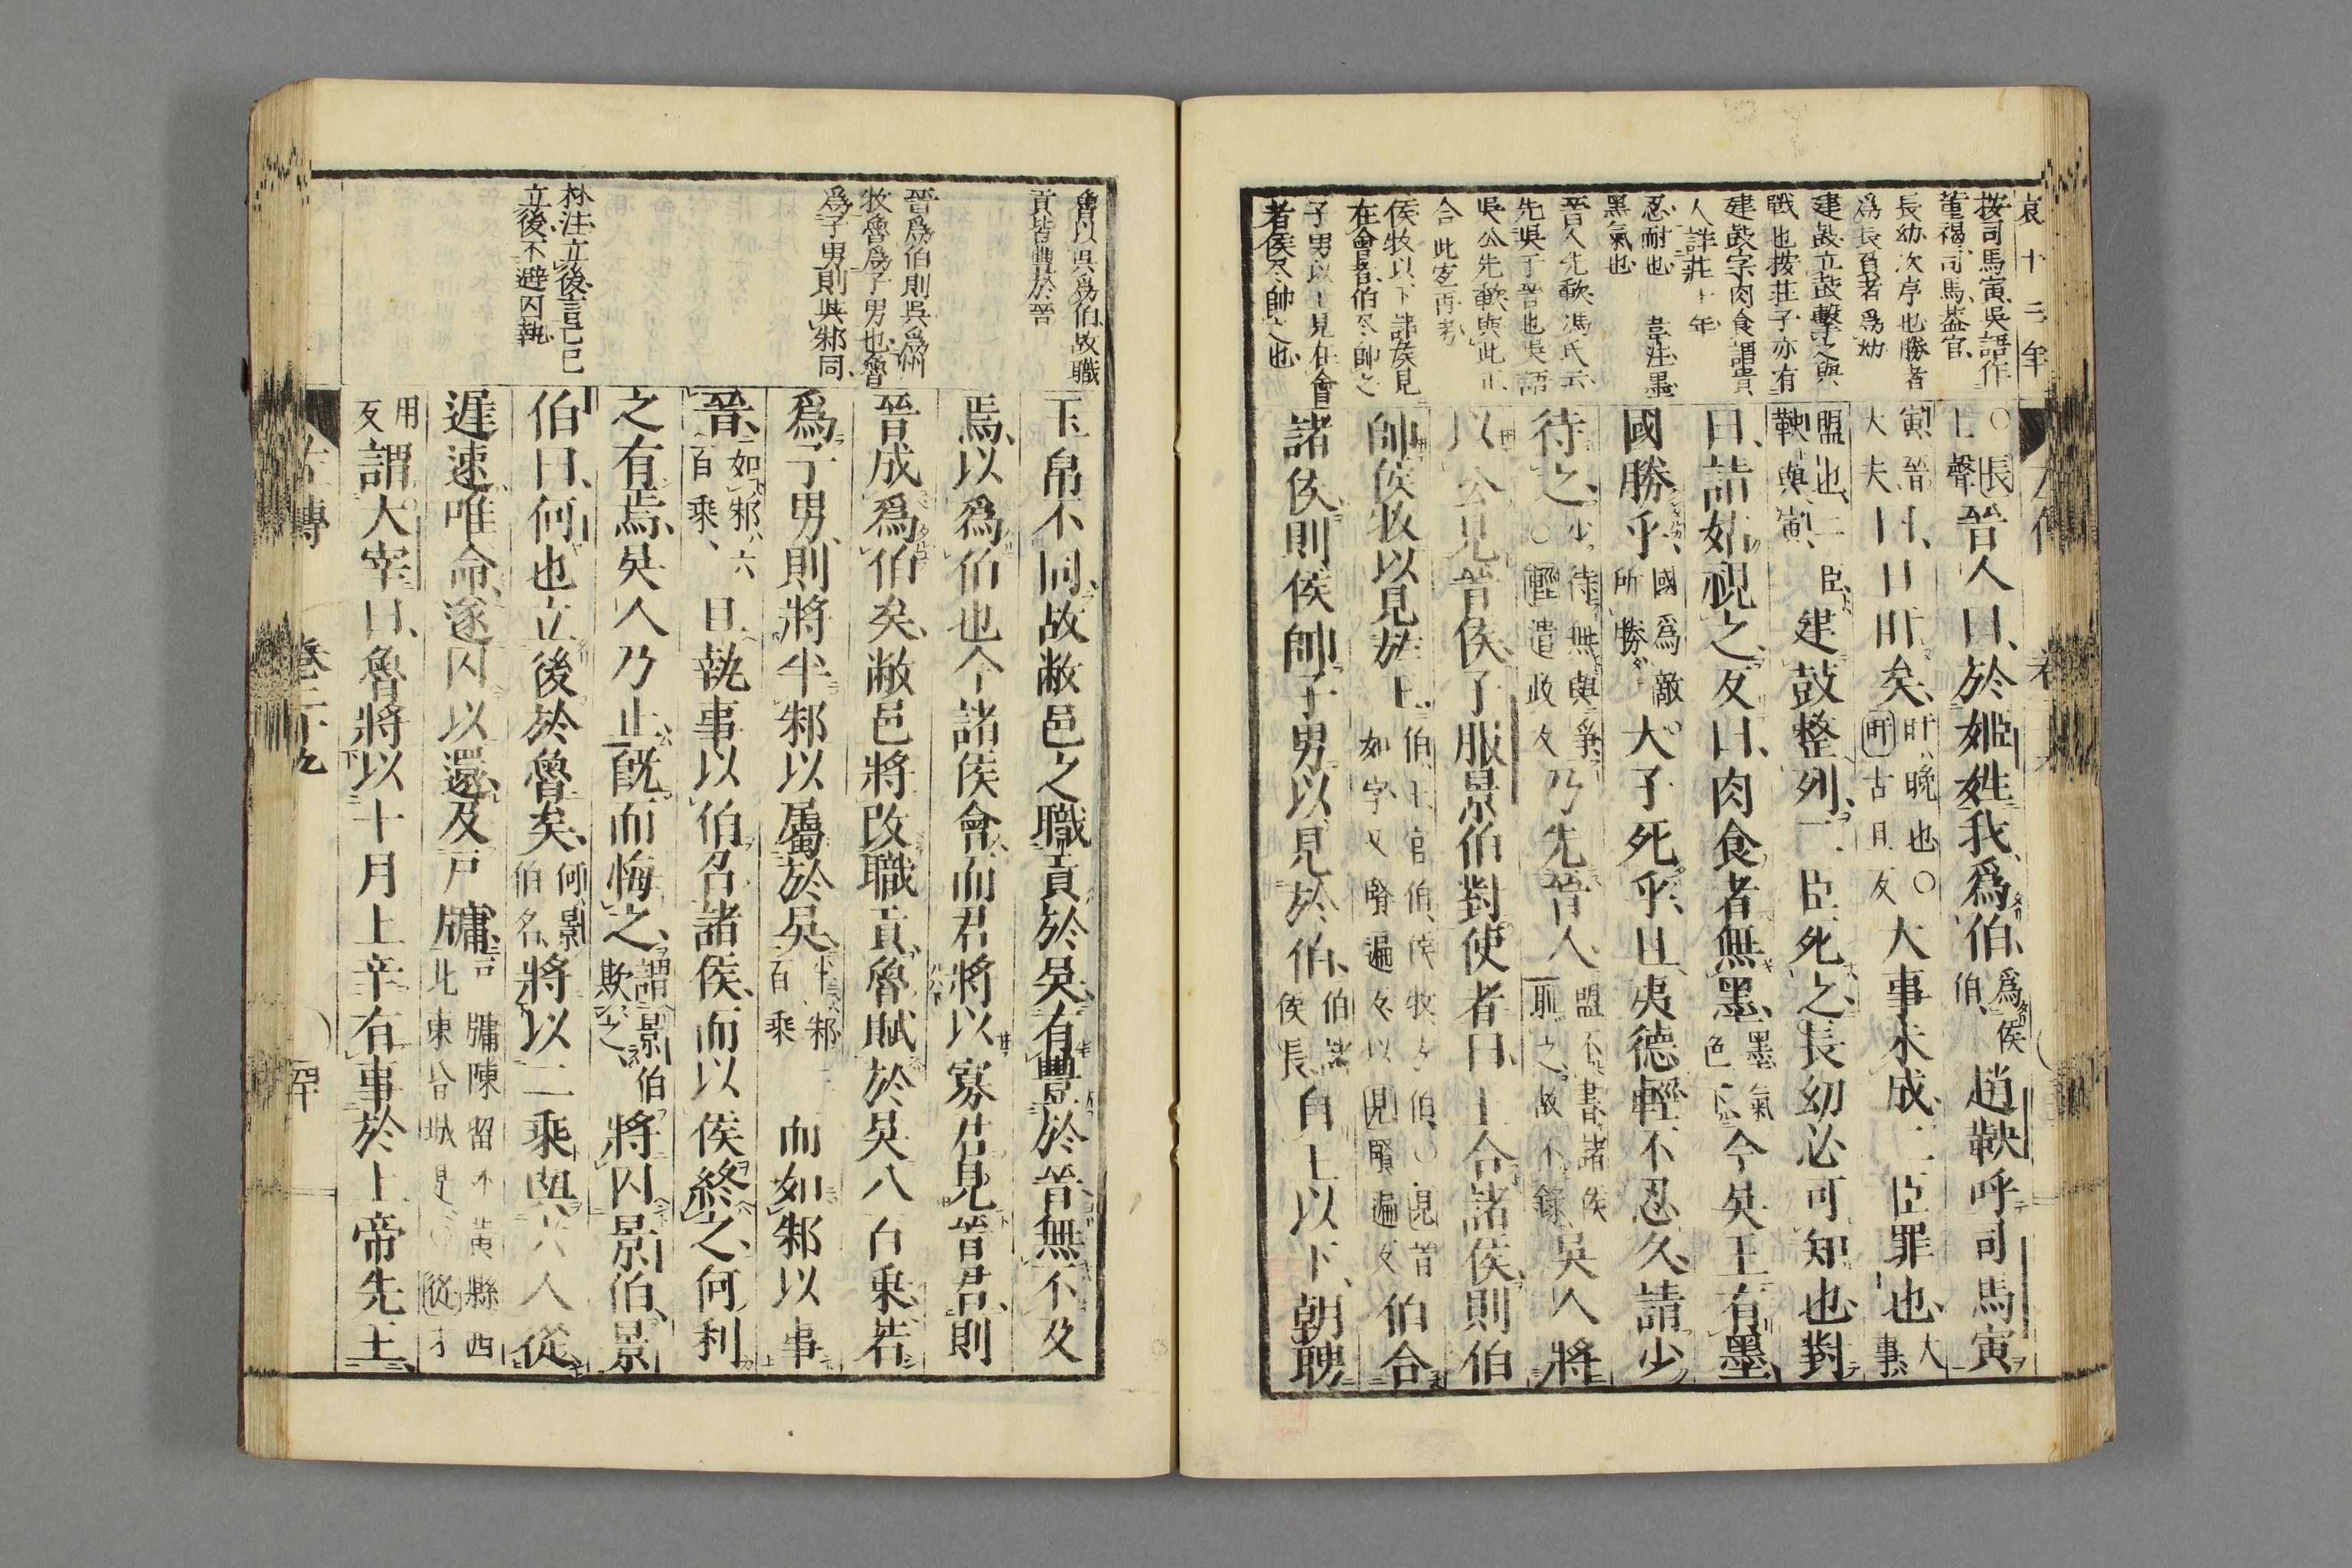 哀十三年
按司馬寅吳語作
董褐司馬葢官
長幼次序也勝者
爲長負者爲幼
建鼓立鼓擊之與
戰也按莊子亦有
建鼓字肉食謂貴
人詳莊十年
忍耐也 韋注墨
黑氣也
晉人先歃馮氏云
先吳于晉也吳語
吳公先歃與此正
合此宜再考
侯牧以下諸侯見
在會者伯尽帥之
子男以上見在會
者侯尽帥之也
〇長上聲晉人曰於姬姓我爲伯爲侯伯趙鞅呼司馬寅
寅晉大夫曰日旰矣旰晚也〇旰古旦反大事未成二臣罪也大事
盟也二臣鞅與寅建鼓整列二臣死之長幼必可知也對
曰請姑視之反曰肉食者無墨墨氣色下今吳王有墨
國勝乎國爲敵所勝大子死乎且夷德輕不忍久請少
待之少待無與爭〇輕遣政反乃先晉人盟不書諸侯恥之故不錄吳人將
以公見晉侯子服景伯對使者曰王合諸侯則伯
帥侯牧以見於王伯王官伯侯牧方伯〇見者如字又賢遍反以見賢遍反伯合
諸侯則侯帥子男以見於伯伯諸侯長自王以下朝聘
魯以吳爲伯故職
貢皆豊於晉
晉爲伯則吳爲州
牧魯爲子男也魯
爲子男則與邾同
林注立後言己已
立後不避囚執
玉帛不同故敝邑之職貢於吳有豐於晉無不及
焉以爲伯也今諸侯會而君將以寡君見晉君則
晉成爲伯矣敝邑將改職貢魯賦於吳八百乘若
爲子男則將半邾以屬於吳半邾三百乘而如邾以事
晉如邾六百乘且執事以伯召諸侯而以侯終之何利
之有焉吳人乃止既而悔之謂景伯欺之將囚景伯景
伯曰何也立後於魯矣何景伯名將以二乘與六人從
遲速唯命遂囚以還及戶牖戶牖陳留外黃縣西北東昏城是〇從才
用反謂大宰曰魯將以十月上辛有事於上帝先王
左傳 卷二十九